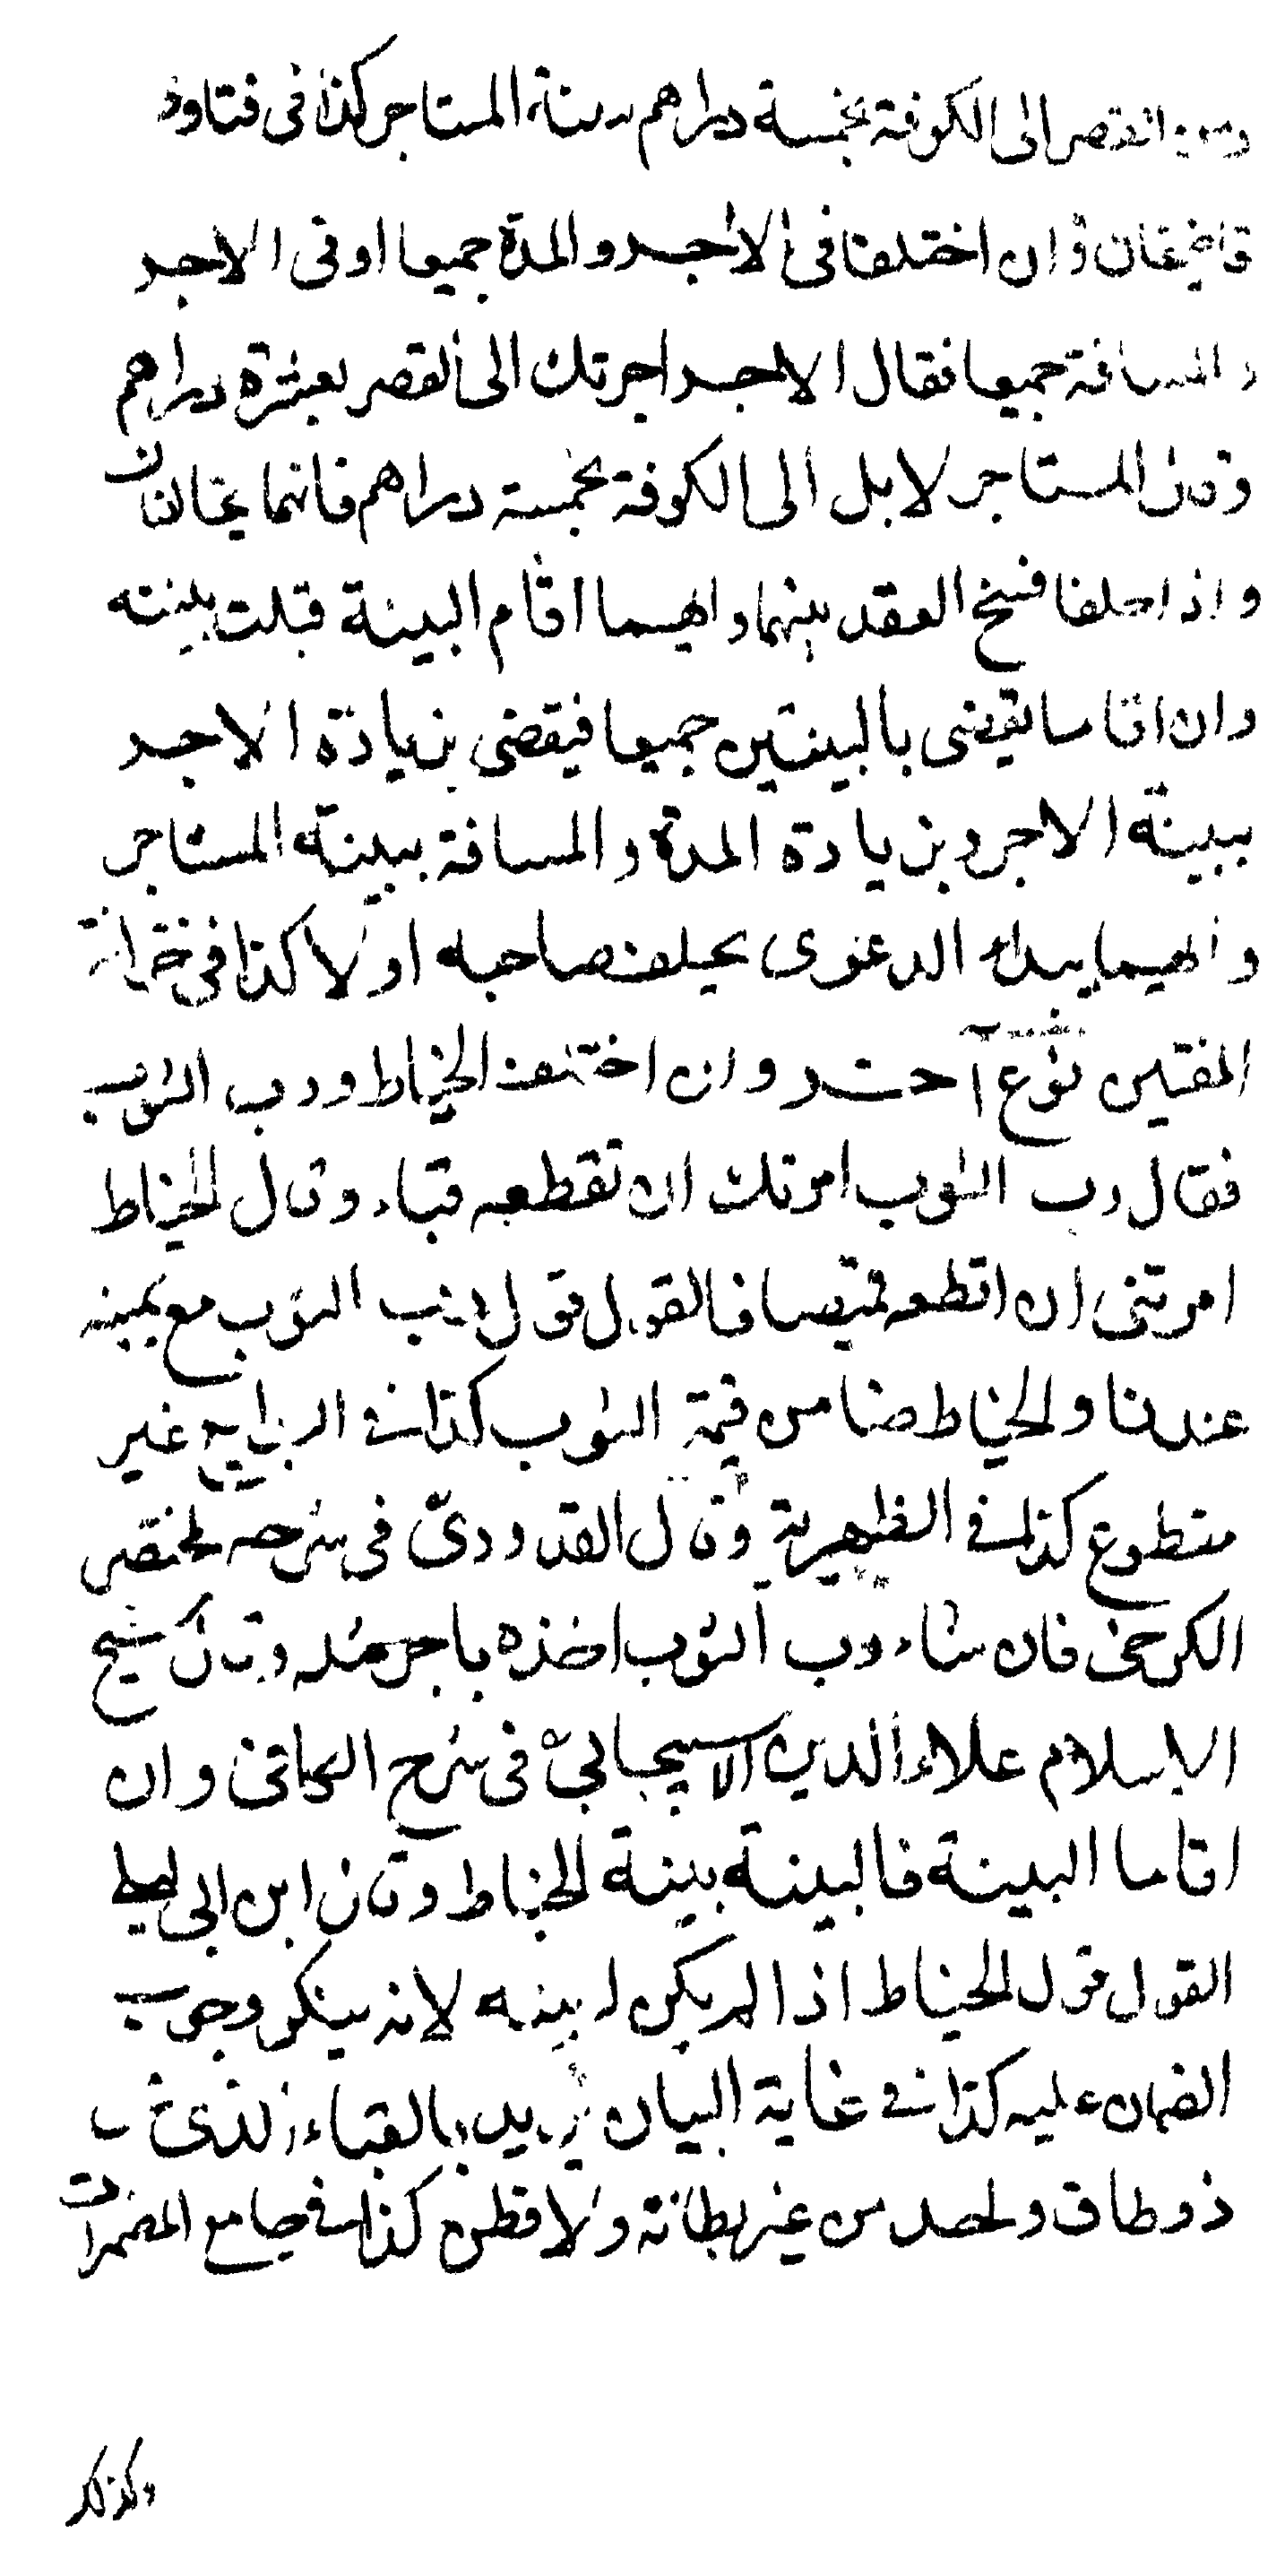 ومن القصر الى الكوفة بخمسة دراهم ببينة المستاجر كذا فى فتاوى
قاضيخان وان اختلفا فى الاجر والمدة جميعا او فى الاجر
والمسافة جميعا فقال الاجر اجرتك الى القصر بعشرة دراهم
وقال المستاجر لا بل الى الكوفة بخمسة دراهم فانهما يتحالفان
واذا حلفا فسخ العقد بينهما وايهما اقام البينة قبلت بينته
وان اقاما يقضى بالبينتين جميعا فيقضى بزيادة الاجر
ببينة الاجر وبزيادة المدة والمسافة ببينة المستاجر
وايهما يبدا الدعوى يحلف صاحبه اولا كذا فى خزانة
المفتين نوع آخر وان اختلف الخياط ورب الثوب
فقال رب الثوب امرتك ان تقطعه قباء وقال الخياط
امرتنى ان اقطعه قميصا فالقول قول رب الثوب مع يمينه
عندنا والخياط ضامن قيمة الثوب كذا فى غير
متطوع كذا فى الظهيرية وقال القدورى فى شرحه لمختصر
الكرخى فان شاء رب الثوب اخذه باجر مثله وقال شيخ
الاسلام علاء الدين الاسبيجابى فى شرح الكافى وان
اقاما البينة فالبينة بينة الخياط وقال ابن ابى ليلى
القول قول الخياط اذا لم يكن له بينة لانه ينكر وجوب
الضمان عليه كذا فى غاية البيان يريد بالقباء الذى
ذو طاق واحد من غير بطانة ولا قطن كذا فى جامع المضمرات
وكذلك